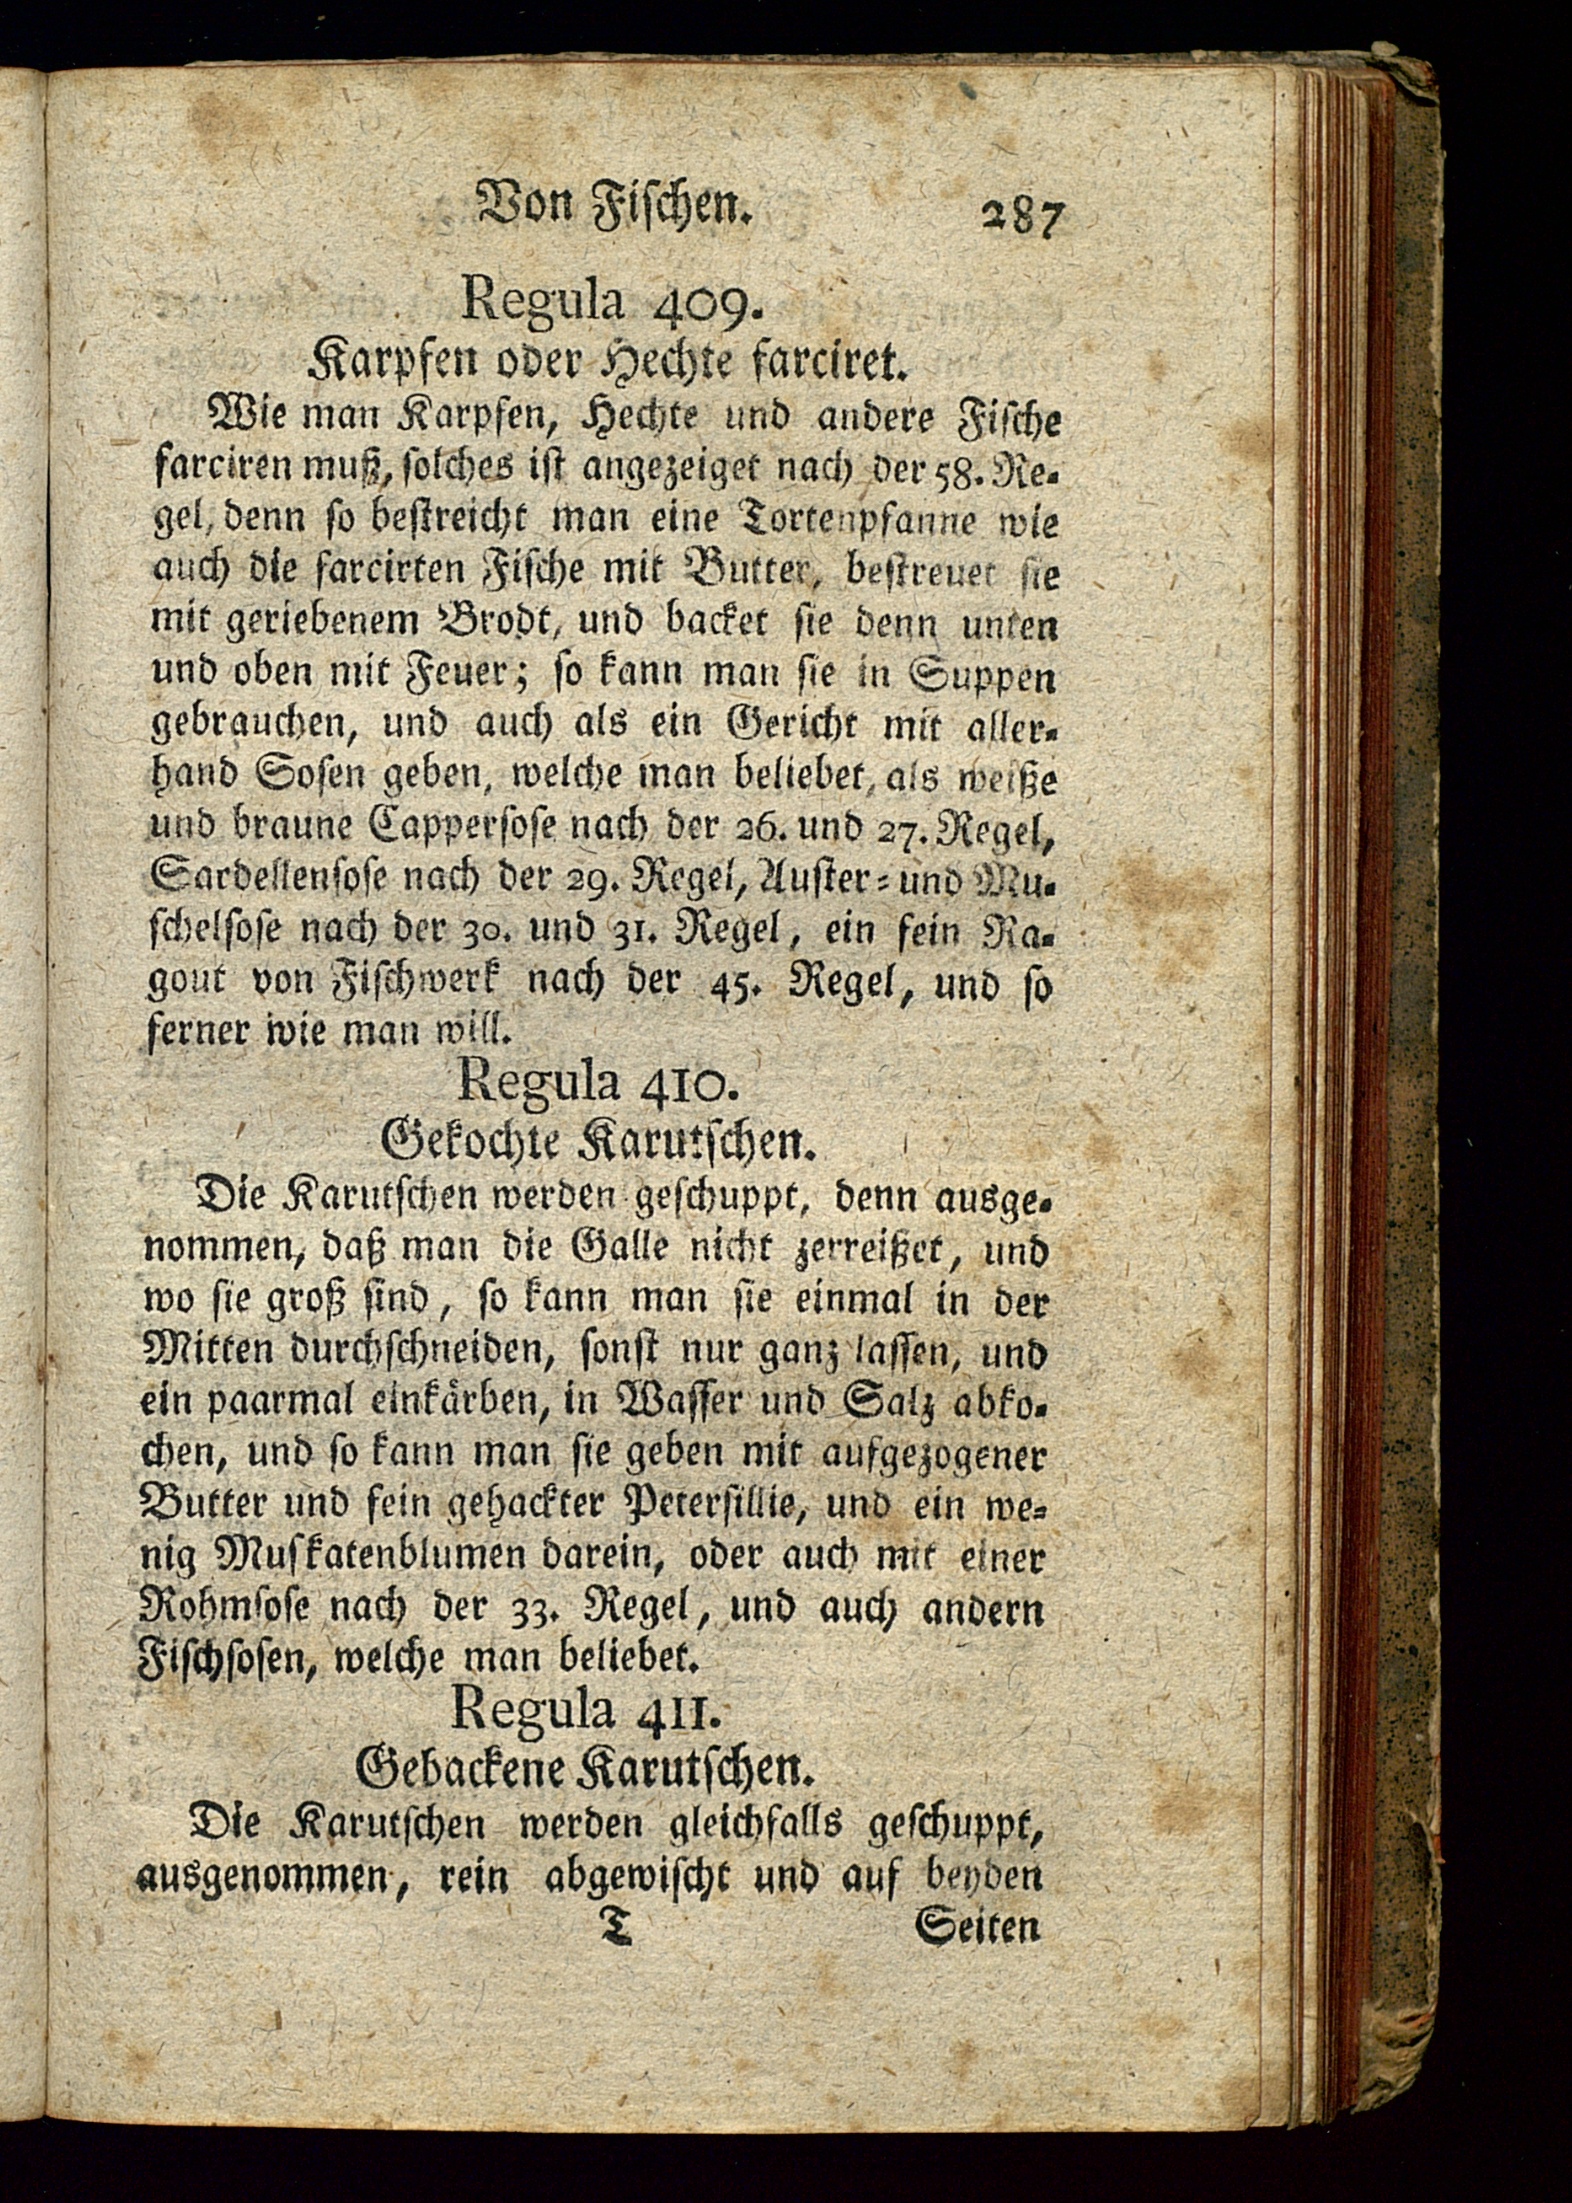 Von Fiſchen. 287
Regula 409.
Karpfen oder Hechte farciret.
Wie man Karpfen, Hechte und andere Fiſche
farciren muß, ſolches iſt angezeiget nach der 58. Re-
gel, denn ſo beſtreicht man eine Tortenpfanne wie
auch die farcirten Fiſche mit Butter, beſtreuet ſie
mit geriebenem Brodt, und backet ſie denn unten
und oben mit Feuer; ſo kann man ſie in Suppen
gebrauchen, und auch als ein Gericht mit aller-
hand Soſen geben, welche man beliebet, als weiße
und braune Capperſoſe nach der 26. und 27. Regel,
Sardellenſoſe nach der 29. Regel, Auſter- und Mu-
ſchelſoſe nach der 30. und 31. Regel, ein fein Ra-
gout von Fiſchwerk nach der 45. Regel, und ſo
ferner wie man will.
Regula 410.
Gekochte Karutſchen.
Die Karutſchen werden geſchuppt, denn ausge-
nommen, daß man die Galle nicht zerreißet, und
wo ſie groß ſind, ſo kann man ſie einmal in der
Mitten durchſchneiden, ſonſt nur ganz laſſen, und
ein paarmal einkärben, in Waſſer und Salz abko-
chen, und ſo kann man ſie geben mit aufgezogener
Butter und fein gehackter Peterſillie, und ein we-
nig Muſkatenblumen darein, oder auch mit einer
Rohmſoſe nach der 33. Regel, und auch andern
Fiſchſoſen, welche man beliebet.
Regula 411.
Gebackene Karutſchen.
Die Karutſchen werden gleichfalls geſchuppt,
ausgenommen, rein abgewiſcht und auf beyden
T Seiten